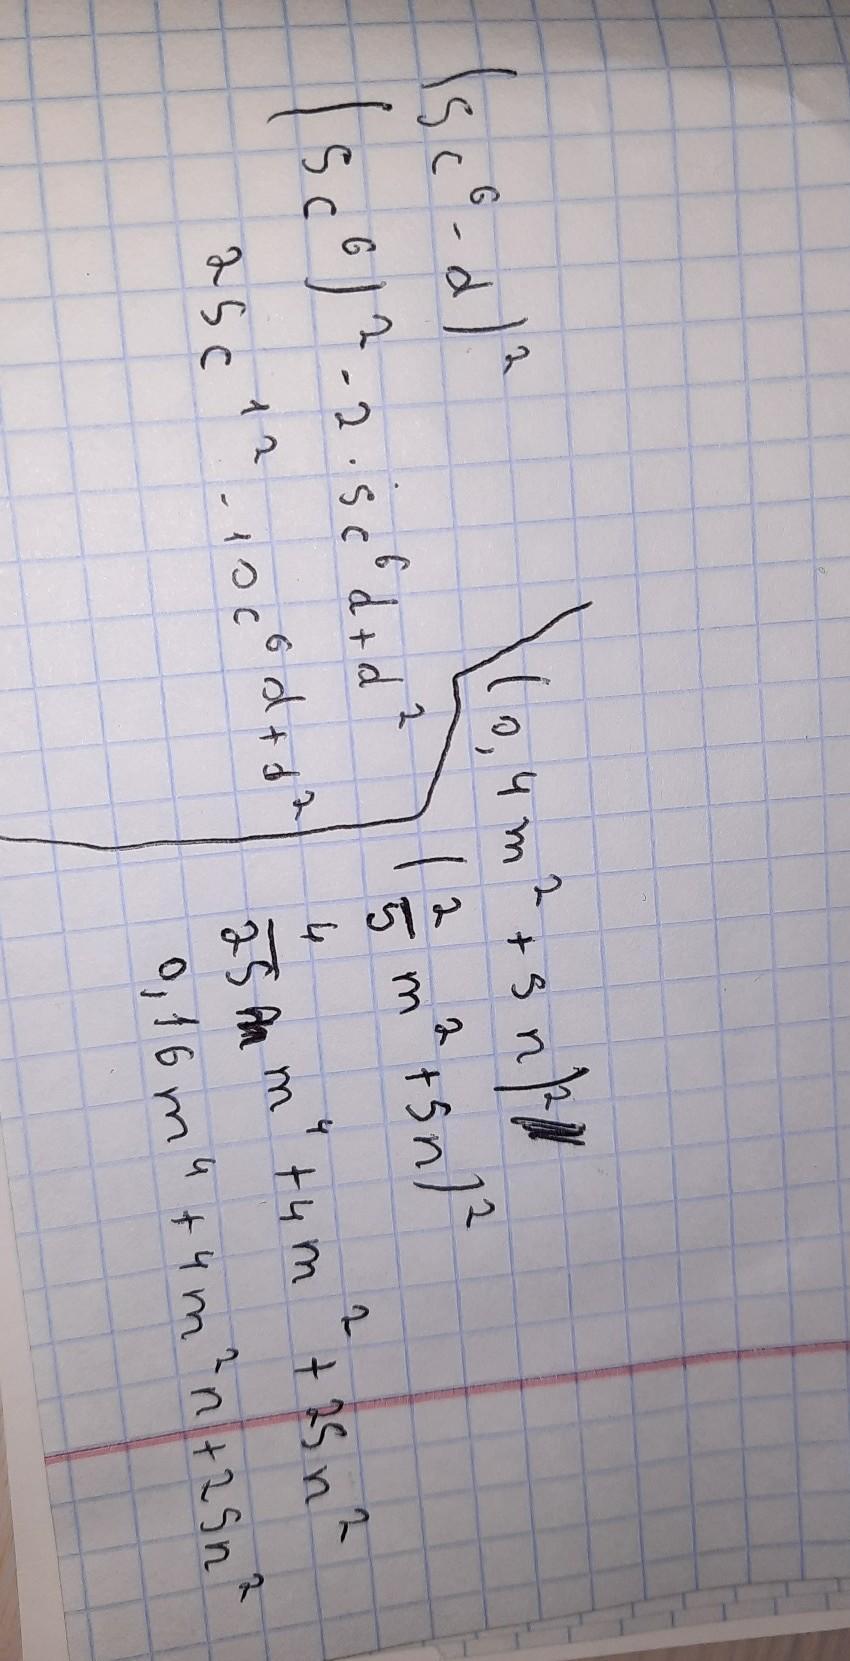 (5c⁶-d)²
(5c⁶)²-2·5c⁶d+d²
25c¹²-10c⁶d+d²
(0,4m²+5n)²
(2/5 m²+5n)²
4/25 m⁴+4m²+25n²
0,16m⁴+4m²n+25n²